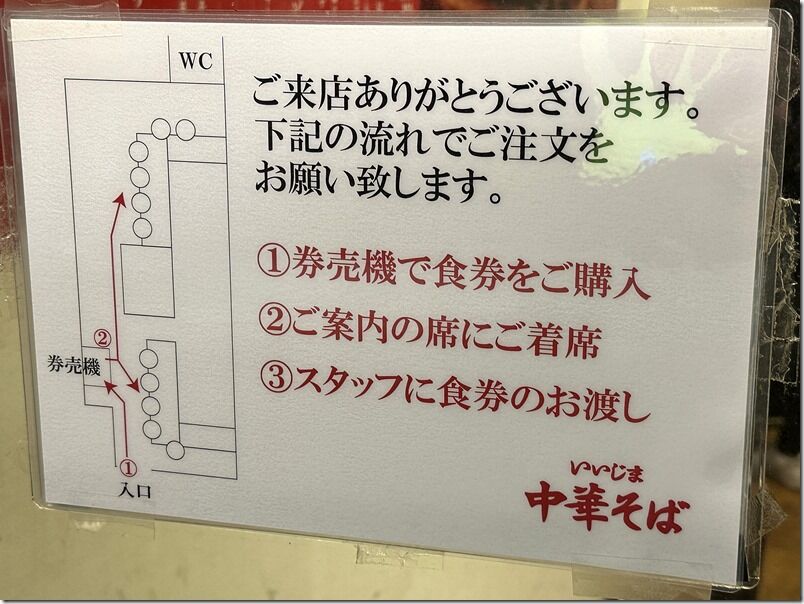 WC
ご来店ありがとうございます。
下記の流れでご注文を
お願い致します。
①券売機で食券をご購入
②ご案内の席にご着席
③スタッフに食券のお渡し
②
券売機
①
入口
いいじま
中華そば